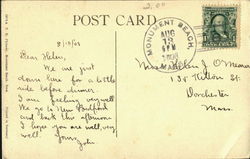 2.00
POST CARD.
8/13/08
Dear Helen,
We are just
down here for a little
ride before dinner.
I am feeling very well
We go to New Bedford
and back this afternoon
I hope you are well, very
well.
Yours,
John
MONUMENT BEACH,
AUG
13
MASS.
Miss Helen J. O'Meara
138
Dorchester
Mass.